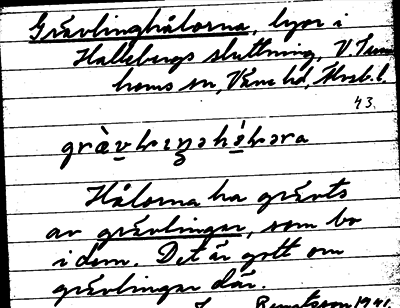 Grävlinghålorna, lyor i
Hallebergs sluttning, V. Tun
hems sn, Väne hd, Älvsb. l.
43.
Hålorna ha grävts
av grävlingar, som bo
i dem. Det är gott om
grävlingar där.
Bengtsson 1941.